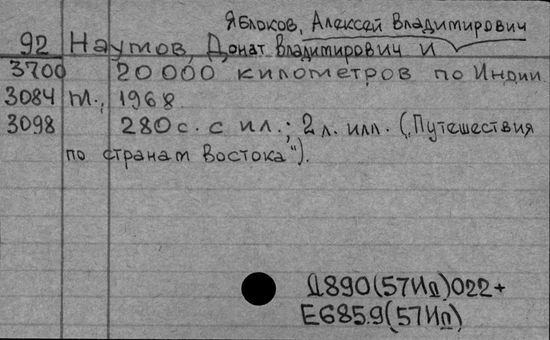 Яблоков, Алексей Владимирович
92 Наумов, Донат Владимирович и
3700 20000 километров по Индии
3084 М., 1968.
3098 280 с. с ил.; 2 л. илл. („Путешествия
по странам Востока").
Д890(57Ип)022+
Е685.9(57Ип)